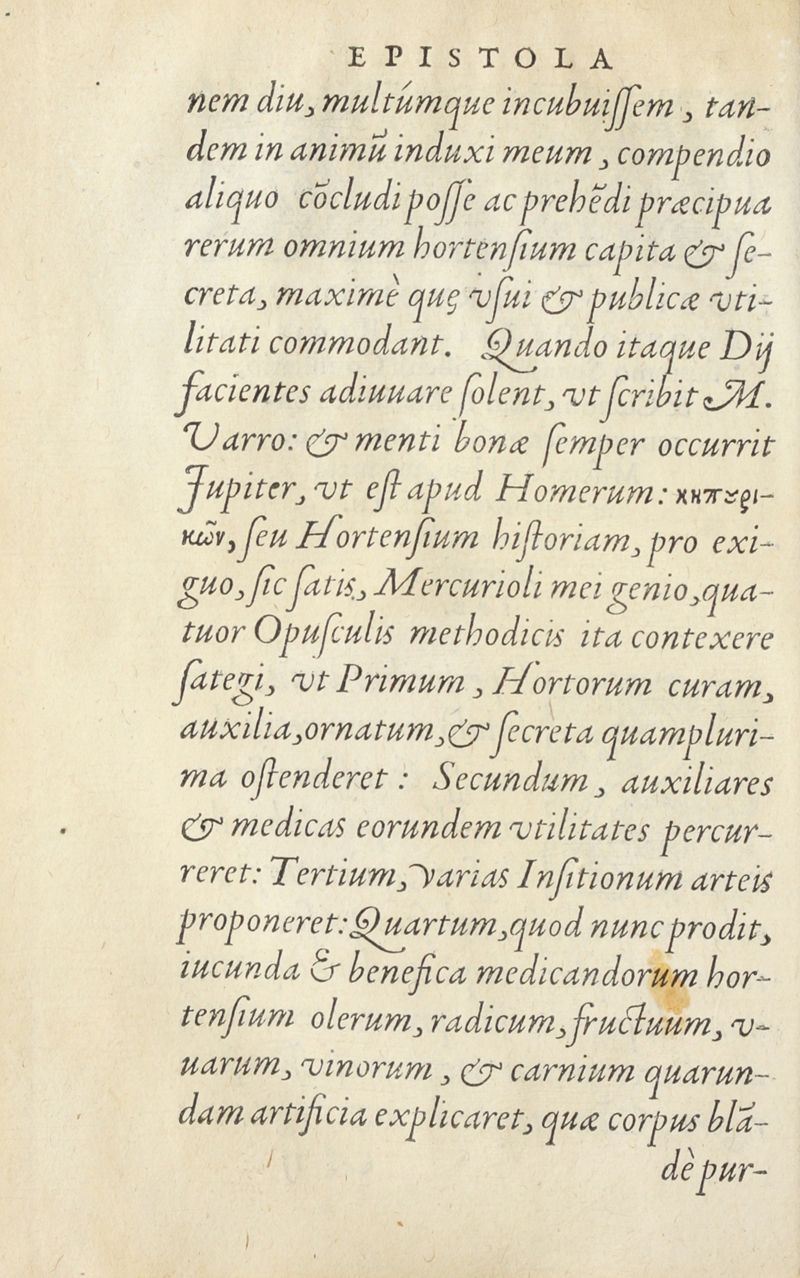 EPISTOLA
nem diu, multúmque incubuiſſem, tan-
dem in animū induxi meum, compendio
aliquo cōcludi poſſe ac prehēdi præcipua
rerum omnium hortenſium capita & ſe-
creta, maximè quę vſui & publicæ vti-
litati commodant. Quando itaque Dij
facientes adiuuare ſolent, vt ſcribit M.
Varro: & menti bonæ ſemper occurrit
Jupiter, vt eſt apud Homerum: κηπουρι-
κῶν, ſeu Hortenſium hiſtoriam, pro exi-
guo, ſic ſatis, Mercurioli mei genio, qua-
tuor Opuſculis methodicis ita contexere
ſategi, vt Primum, Hortorum curam,
auxilia, ornatum, & ſecreta quampluri-
ma oſtenderet: Secundum, auxiliares
& medicas eorundem vtilitates percur-
reret: Tertium, varias Inſitionum arteis
proponeret: Quartum, quod nunc prodit,
iucunda & benefica medicandorum hor-
tenſium olerum, radicum, fructuum, v-
uarum, vinorum, & carnium quarun-
dam artificia explicaret, quæ corpus blā-
dè pur-